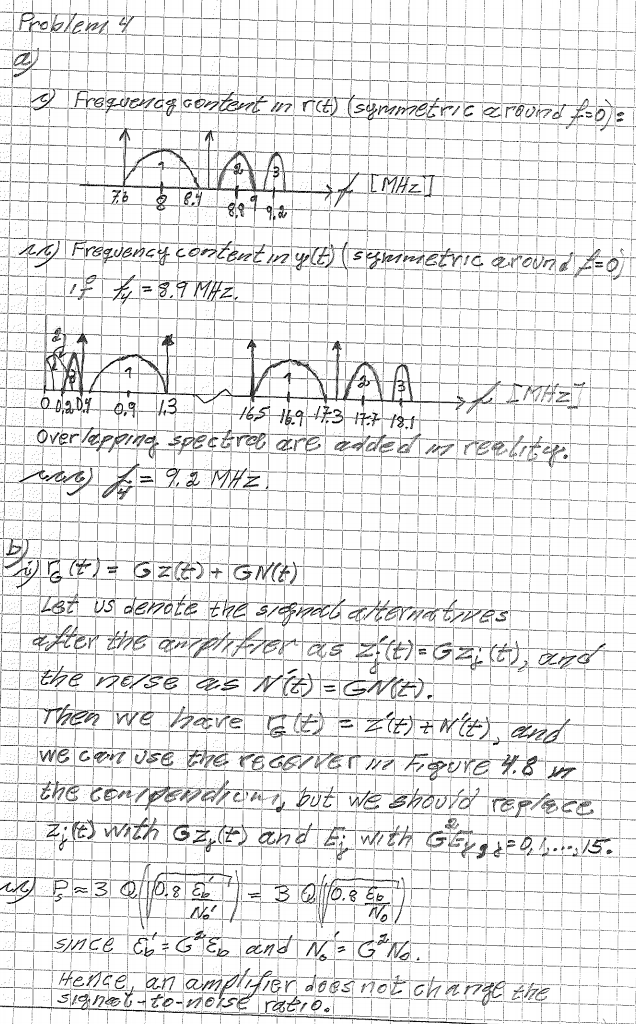 Problem 4
a)
i) Frequency content in r(t) (symmetric around f=0):
1 2 3
7.6 8 8.4 8.8 9 9.2 f [MHz]
ii) Frequency content in y(t) (symmetric around f=0)
if f4 = 8.9 MHz.
2 3 1 1 2 3
0 0.2 0.4 0.9 1.3 16.5 16.9 17.3 17.7 18.1 f [MHz]
Overlapping spectra are added in reality.
iii) f4 = 9.2 MHz.
b)
i) rG(t) = Gz(t) + GN(t)
Let us denote the signal alternatives
after the amplifier as z'j(t) = Gzj(t), and
the noise as N'(t) = GN(t).
Then we have rG(t) = z'(t) + N'(t), and
we can use the receiver in Figure 4.8 in
the compendium, but we should replace
zj(t) with Gzj(t) and Ej with G²Ej, j=0,1,...,15.
ii) Ps ≈ 3 Q(√(0.8 Eb'/N0')) = 3 Q(√(0.8 Eb/N0))
since Eb' = G²Eb and N0' = G²N0.
Hence, an amplifier does not change the
signal-to-noise ratio.